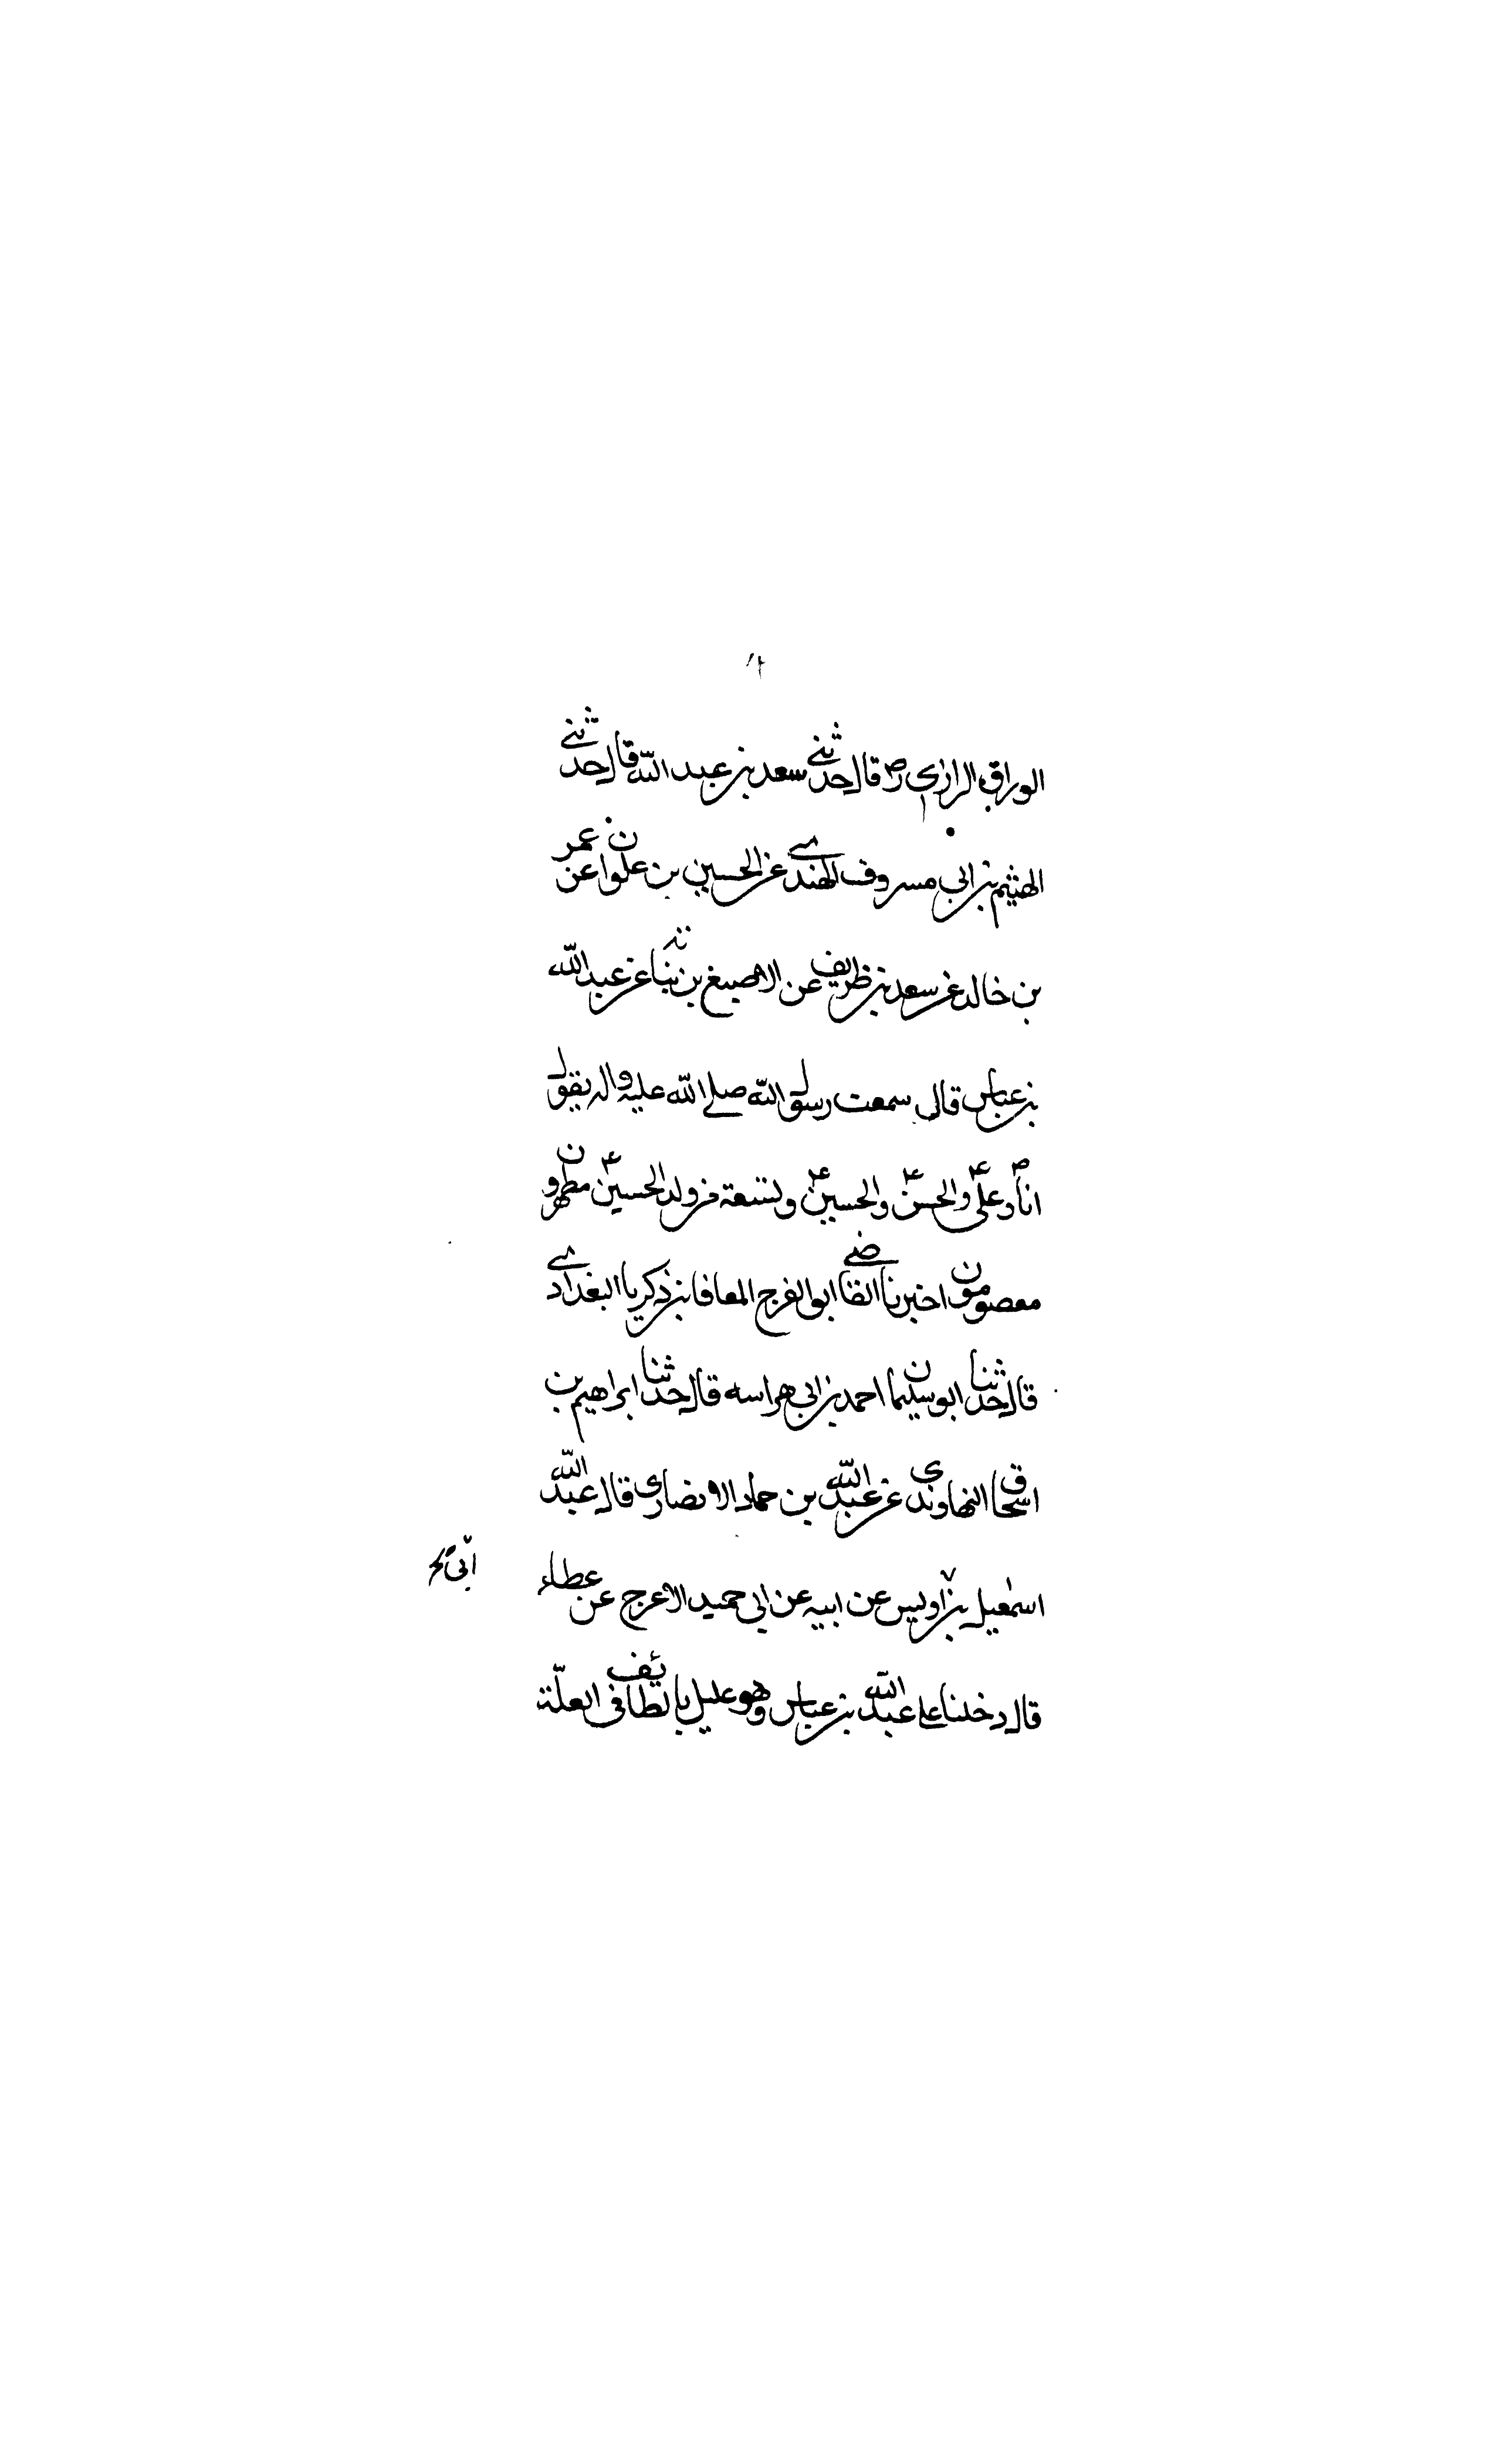 الوراق الرازي رض قال حدثني سعد بن عبد الله قال حدثني
الهيثم بن ابي مسروق الهندي عن الحسين بن علوان عن عمر
بن خالد عن سعد بن ظريف عن الاصبغ بن نباته عن عبد الله
بن عباس قال سمعت رسول الله صلى الله عليه واله يقول
انا ص وعلي ع والحسن ع والحسين ع وتسعة من ولد الحسين ع مطهرون
معصومون اخبرنا القاضي ابو الفرج المعافا بن زكريا البغدادي
قال حدثنا ابو سليمان احمد بن ابي هراسه قال حدثنا ابراهيم بن
اسحاق النهاوندي عن عبد الله بن حماد الانصاري قال عبد الله
اسمعيل بن اويس عن ابيه عن ابي حميد الاعرج عن عطاء
ابي
قال دخلنا على عبد الله بن عباس وهو عليل بالطائف في العلّة